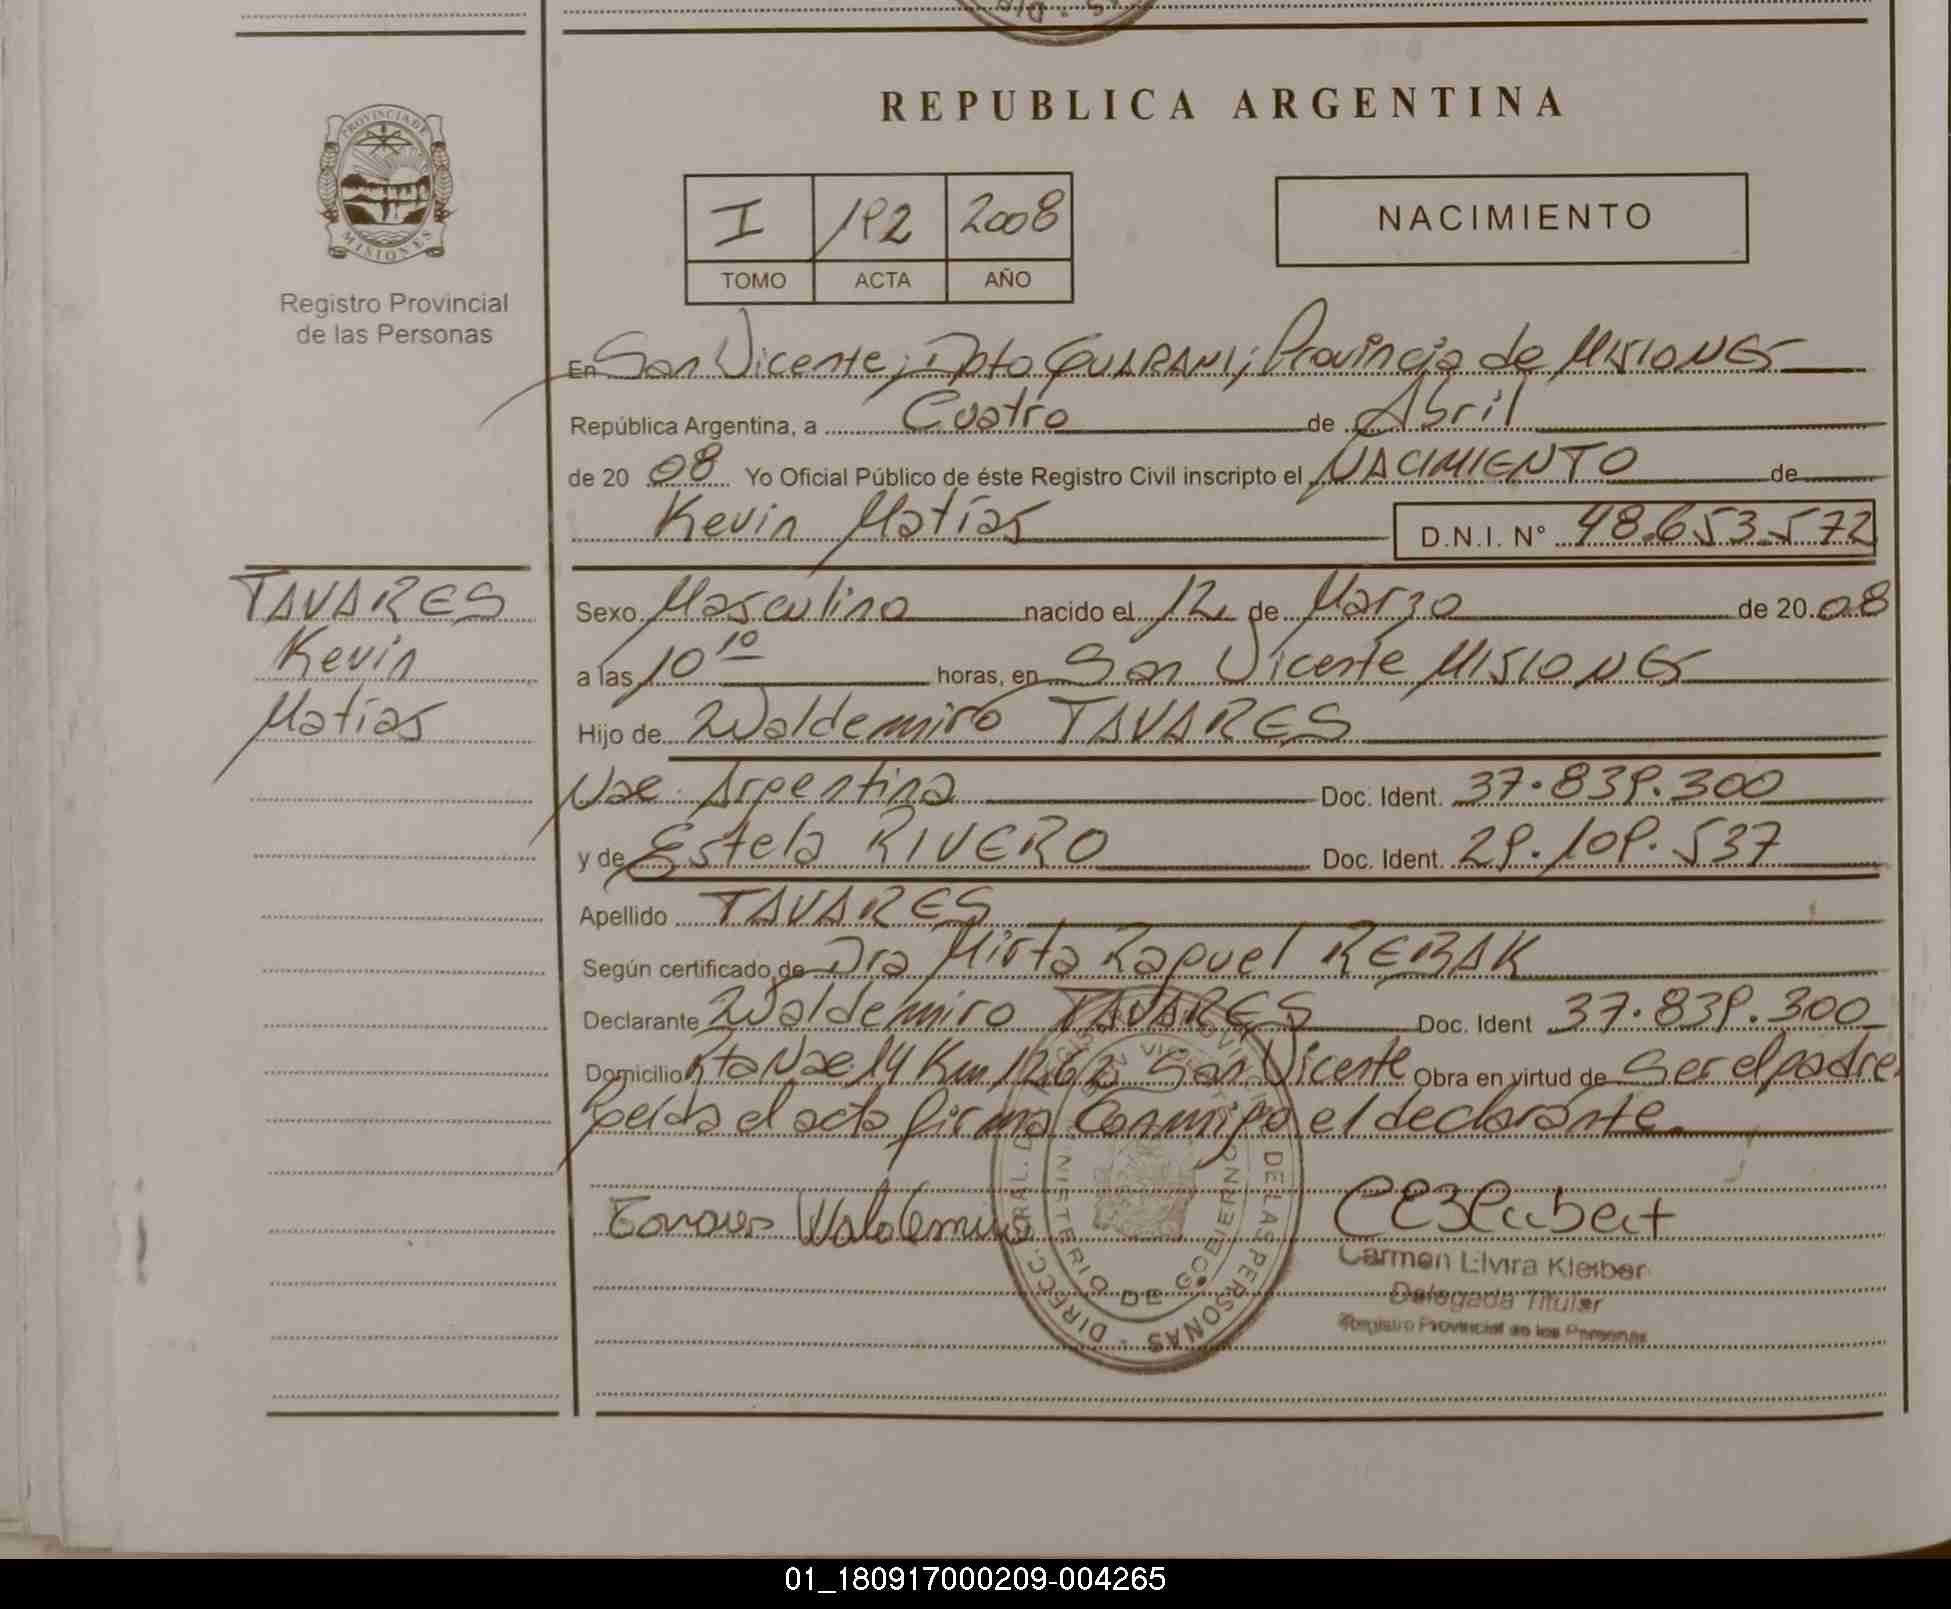 REPUBLICA ARGENTINA
PROVINCIA DE
MISIONES
Registro Provincial
de las Personas
I 192 2008
TOMO ACTA AÑO
NACIMIENTO
En San Vicente, Dpto GUARANI, Provincia de MISIONES
República Argentina, a Cuatro de Abril
de 20 08 Yo Oficial Público de éste Registro Civil inscripto el NACIMIENTO de
Kevin Matías D.N.I. N° 48.653.572
TAVARES
Kevin
Matías
Sexo Masculino nacido el 12 de Marzo de 20 08
a las 10 10 horas, en San Vicente MISIONES
Hijo de Waldemiro TAVARES
Nac. Argentina Doc. Ident. 37.839.300
y de Estela RIVERO Doc. Ident. 29.109.537
Apellido TAVARES
Según certificado de Dra Mirta Raquel REBAK
Declarante Waldemiro TAVARES Doc. Ident 37.839.300
Domicilio Rta Nac 14 Km 1262 San Vicente Obra en virtud de Ser el padre.
Leída el acta firma conmigo el declarante.
Tavares Waldemiro
Carmen Elvira Kleiber
Delegada Titular
Registro Provincial de las Personas
DE LAS PERSONAS - DIRECC. GRAL. DE
MINISTERIO DE GOBIERNO
01_180917000209-004265